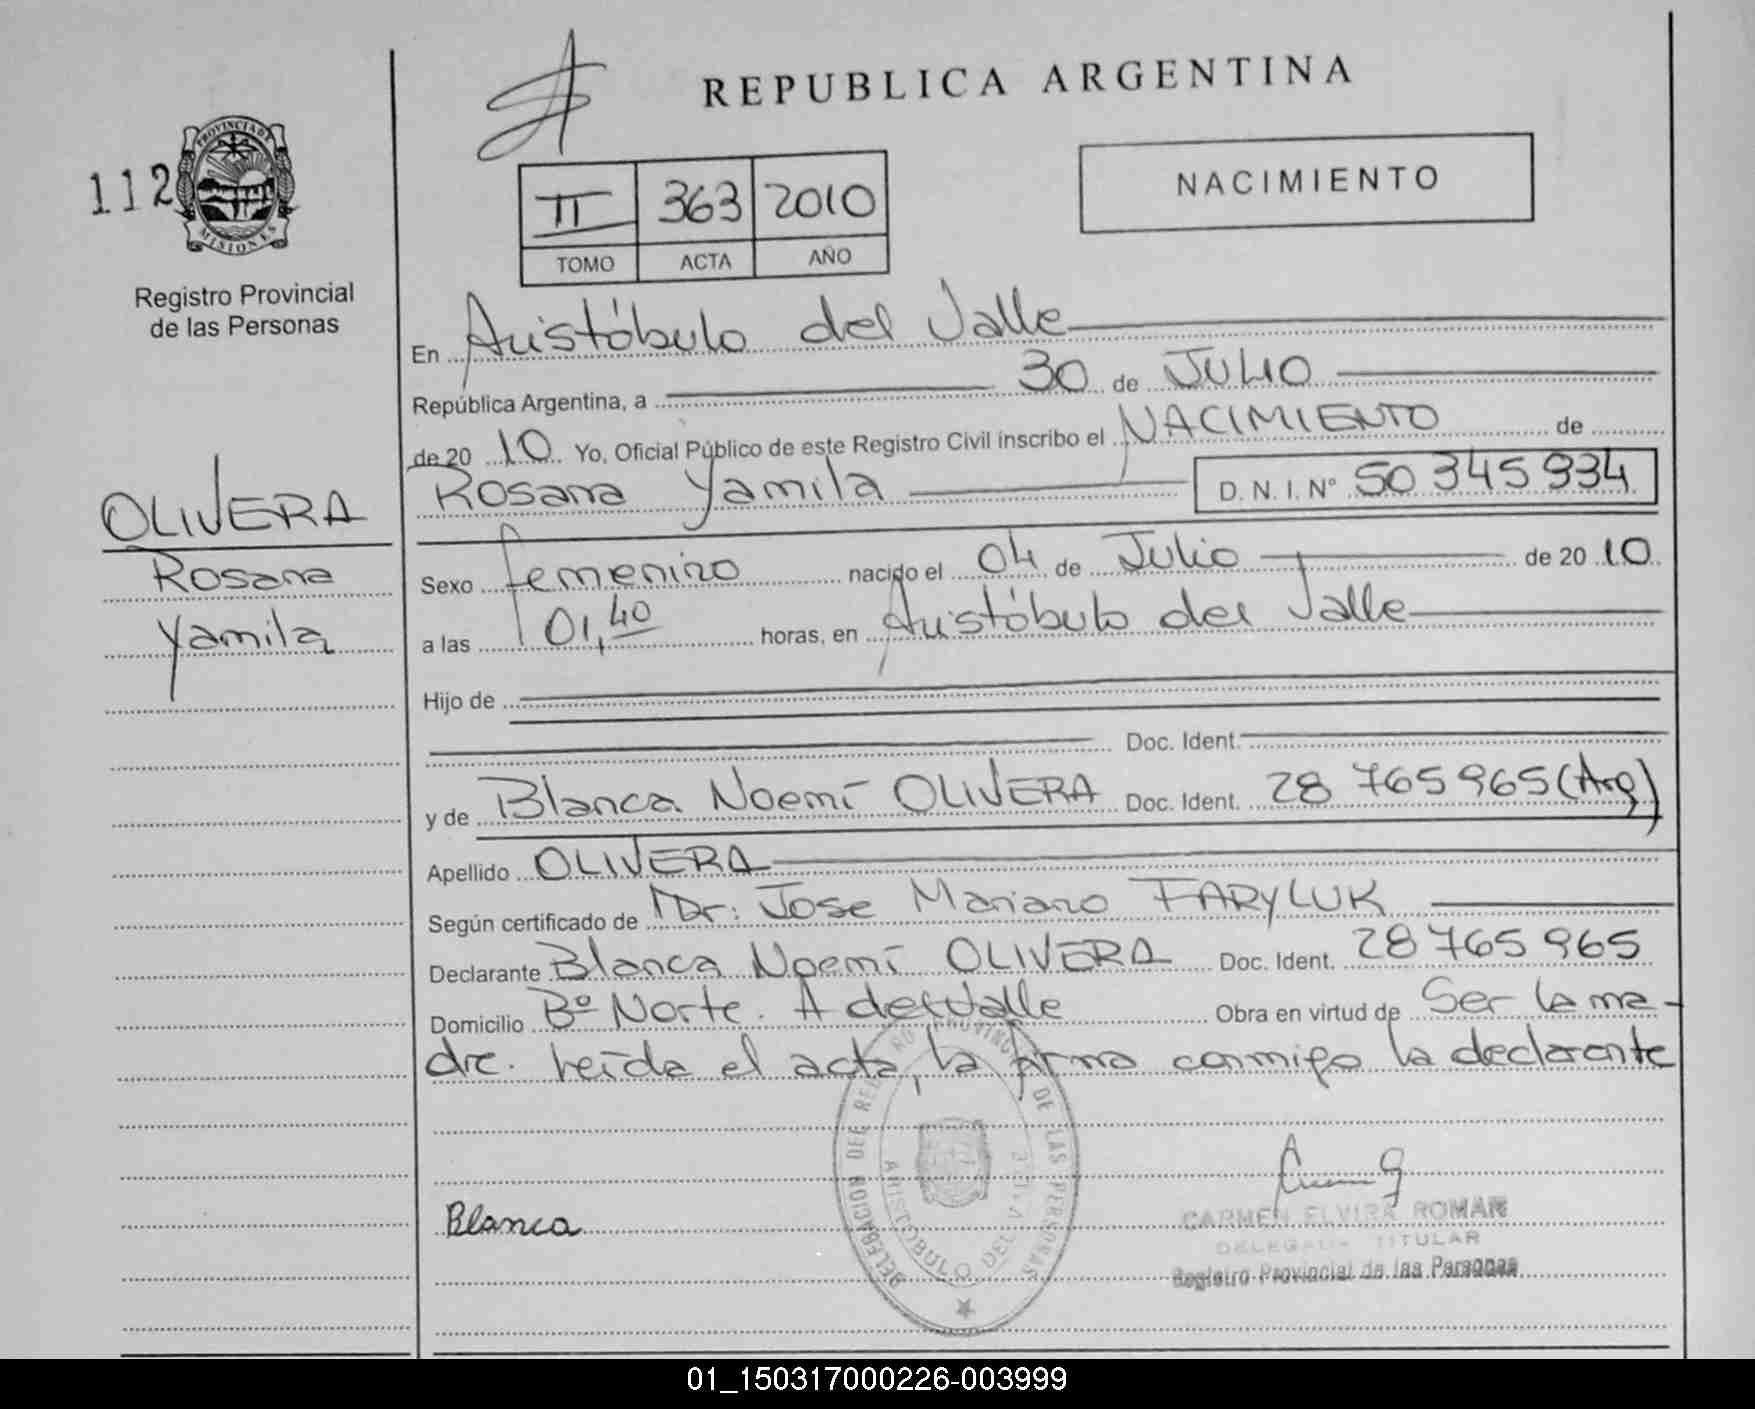 REPUBLICA ARGENTINA
112
PROVINCIA DE
MISIONES
Registro Provincial
de las Personas
II 363 2010
TOMO ACTA AÑO
NACIMIENTO
En Aristóbulo del Valle
República Argentina, a 30 de JULIO
de 20 10 Yo, Oficial Público de este Registro Civil inscribo el NACIMIENTO de
Rosana Yamila D. N. I. Nº 50 345 934
OLIVERA
Rosana
Yamila
Sexo femenino nacido el 04 de Julio de 20 10
a las 01,40 horas, en Aristóbulo del Valle
Hijo de
Doc. Ident.
y de Blanca Noemí OLIVERA Doc. Ident. 28 765 965 (Arg)
Apellido OLIVERA
Según certificado de Dr: Jose Mariano FARYLUK
Declarante Blanca Noemí OLIVERA Doc. Ident. 28 765 965
Domicilio Bº Norte. A del Valle Obra en virtud de Ser la ma-
dre. Leída el acta, la firma conmigo la declarante
DELEGACION DEL REGISTRO PROVINCIAL DE LAS PERSONAS
ARISTOBULO DEL VALLE
Blanca
CARMEN ELVIRA ROMAN
DELEGADA TITULAR
Registro Provincial de las Personas
01_150317000226-003999